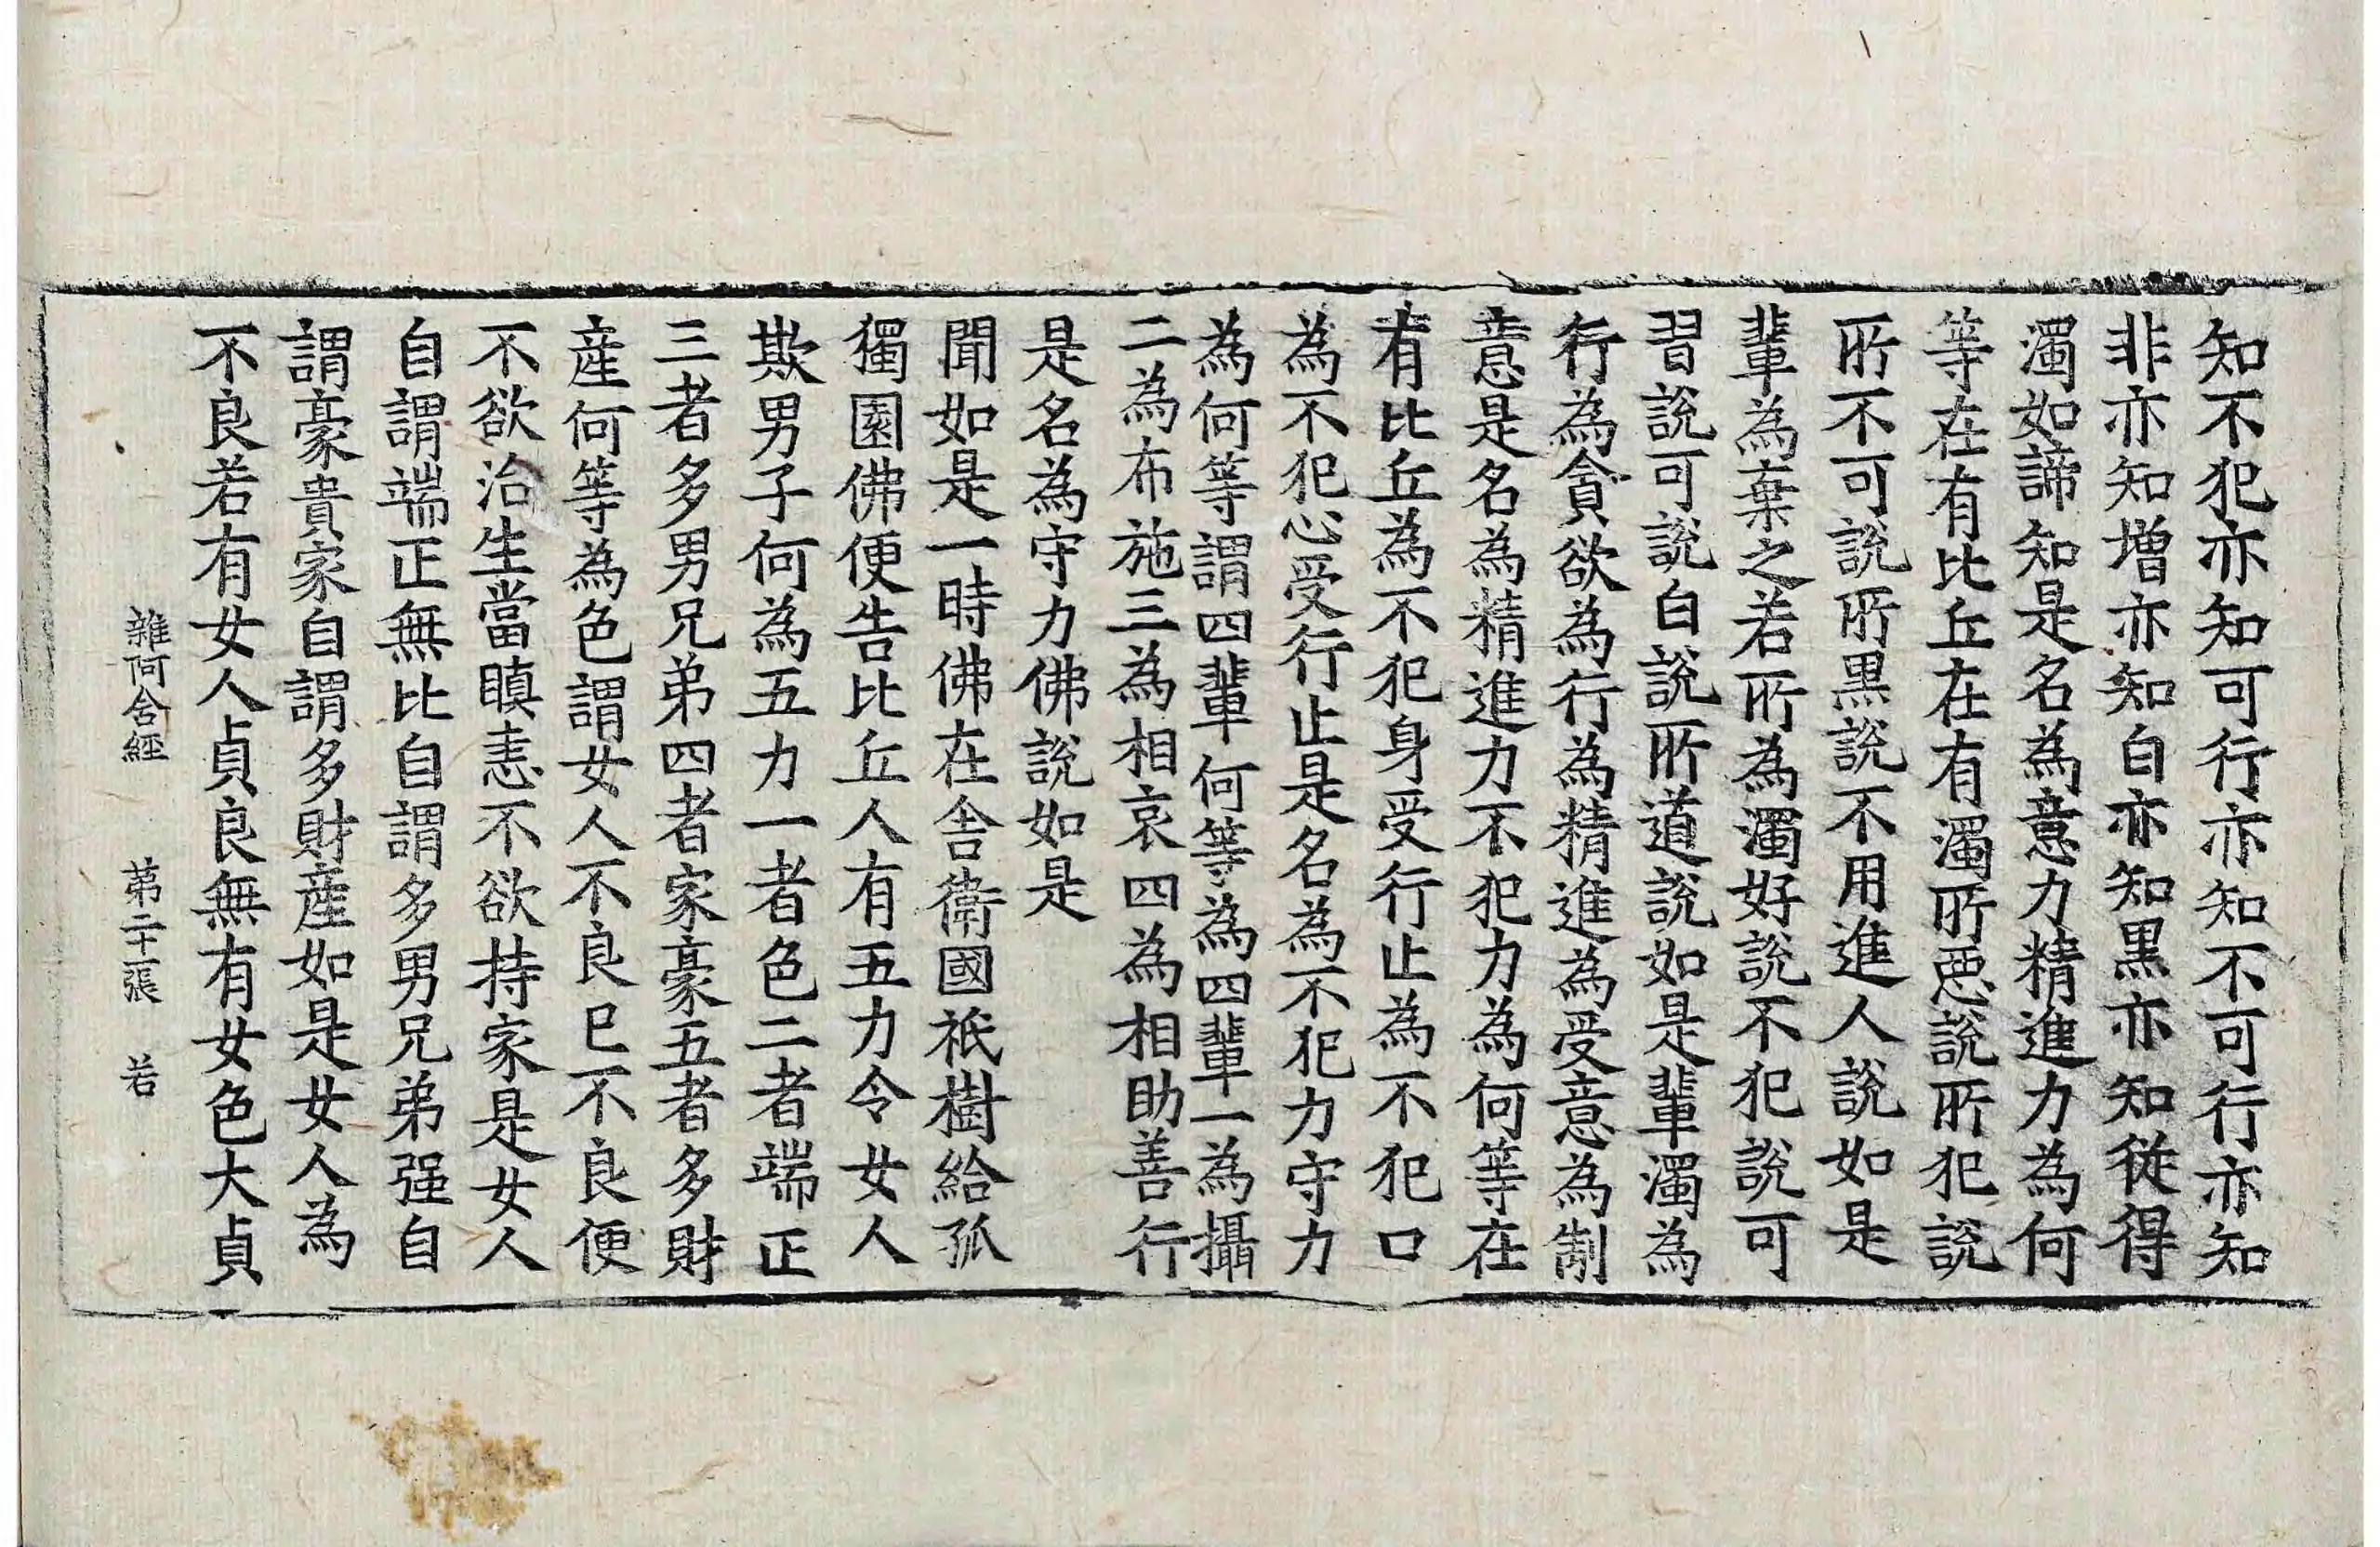 知不犯亦知可行亦知不可行亦知
非亦知增亦知白亦知黒亦知従得
濁如諦知是名為意力精進力為何
等在有比丘在有濁所惡說所犯說
所不可說所黒說不用進人說如是
輩為棄之若所為濁好說不犯說可
習說可說白說所道說如是輩濁為
行為貪欲為行為精進為受意為制
意是名為精進力不犯力為何等在
有比丘為不犯身受行止為不犯口
為不犯心受行止是名為不犯力守力
為何等謂四輩何等為四輩一為攝
二為布施三為相哀四為相助善行
是名為守力佛說如是
聞如是一時佛在舍衛國祇樹給孤
獨園佛便告比丘人有五力令女人
欺男子何為五力一者色二者端正
三者多男兄弟四者家豪五者多財
產何等為色謂女人不良已不良便
不欲治生當瞋恚不欲持家是女人
自謂端正無比自謂多男兄弟强自
謂豪貴家自謂多財產如是女人為
不良若有女人貞良無有女色大貞
雜阿含經　第二十張　若